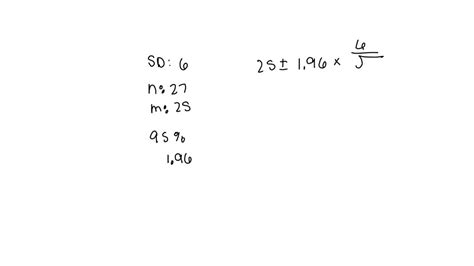 SD: 6
n: 27
m: 25
95%
1.96
25 ± 1.96 × 6/√